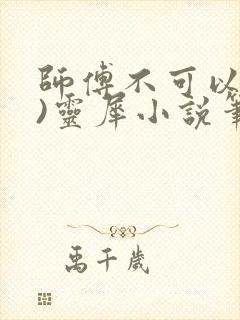 師傅不可以
)靈犀小説筆
禹千歲